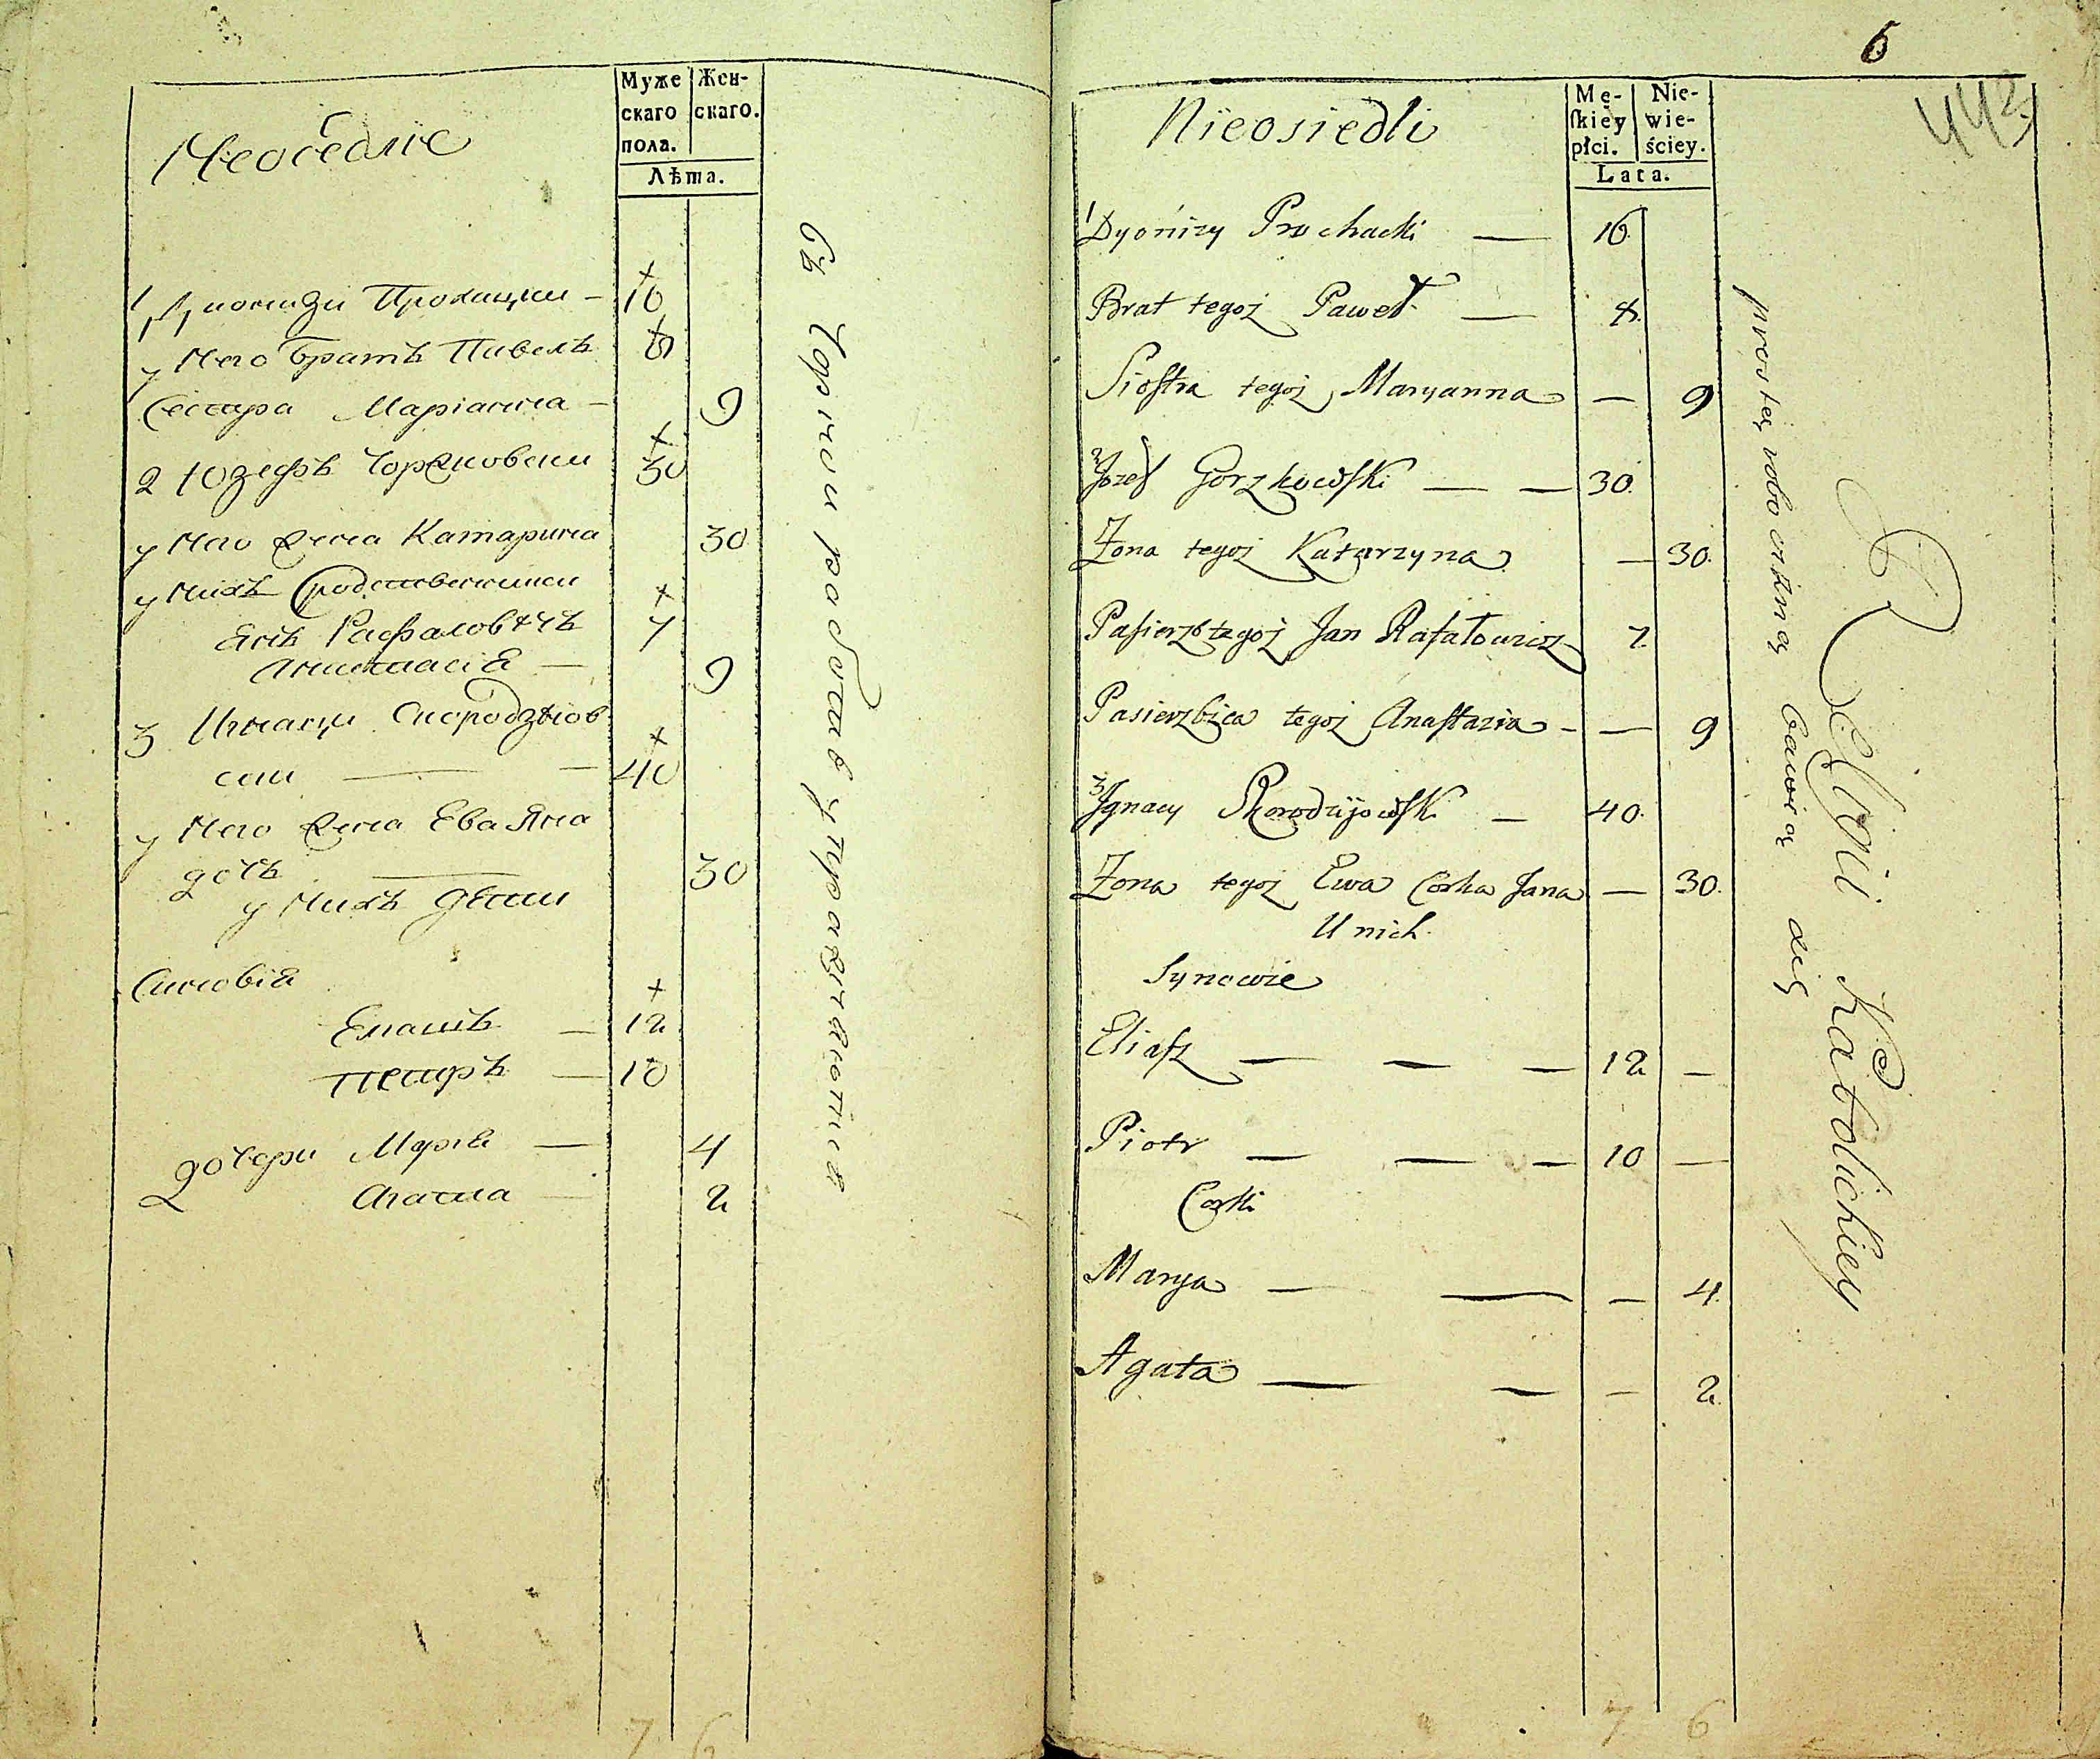 Неоседліе
Муже
скаго
пола.
Жен-
скаго.
Лѣта.
1, Дионизи Прохацки — 16
у Него братъ Павелъ 8
Сестра Маріанна — 9
2 Юзефъ Горжковски 30
у Него жена Катарина 30
у Нихъ Сродственники
Янъ Рафаловичъ 7
Анастасія — 9
3 Игнацы Скородзіов
ски — — 40
у Него жена Ева Яна
дочь — 30
у Нихъ дети
Синовія
Еліашъ — 12
Петръ — 10
дочери Марія — 4
Агата — 2
7 6
6
442
Nieosiedli
Mę-
ſkiey
płci.
Nie-
wie-
ściey.
Lata.
1 Dyonizy Prochacki — 16.
Brat tegoż Paweł — 8.
Siostra tegoż Maryanna — 9
2 Jozef Gorzkowski — — 30.
Zona tegoż Katarzyna — 30.
Pasierzb tegoż Jan Rafałowicz 7.
Pasierzbica tegoż Anastazia — — 9
3 Ignacy Skorodzijowski — 40.
Zona tegoż Ewa Corka Jana — 30.
U nich
Synowie
Eliasz — — — 12 —
Piotr — — — 10 —
Corki
Marya — — — 4.
Agata — — — 2
prostą robocizną bawią się
Religii Katolickiey
7 6